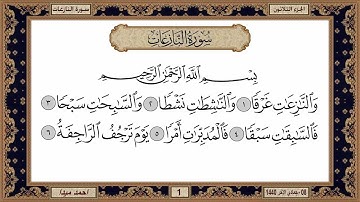 سورة النازعات
الجزء الثلاثون
سُورَةُ النَّازِعَاتِ
بِسْمِ اللَّهِ الرَّحْمَٰنِ الرَّحِيمِ
وَالنَّازِعَاتِ غَرْقًا ١ وَالنَّاشِطَاتِ نَشْطًا ٢ وَالسَّابِحَاتِ سَبْحًا ٣
فَالسَّابِقَاتِ سَبْقًا ٤ فَالْمُدَبِّرَاتِ أَمْرًا ٥ يَوْمَ تَرْجُفُ الرَّاجِفَةُ ٦
1
1440